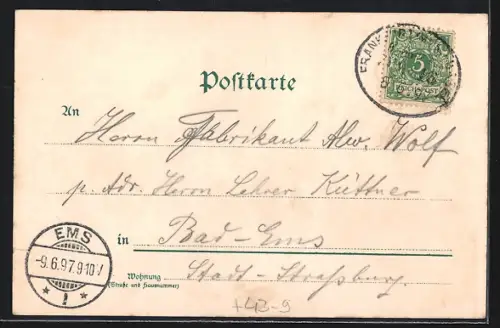 Postkarte
An
Herrn Fabrikant Alex. Wolf
p. Adr. Herrn Lehrer Küttner
in Bad-Ems
Wohnung Stadt-Straßburg.
(Straße und Hausnummer)
EMS
-9.6.97.9-10V
* 1 *
FRANK
5